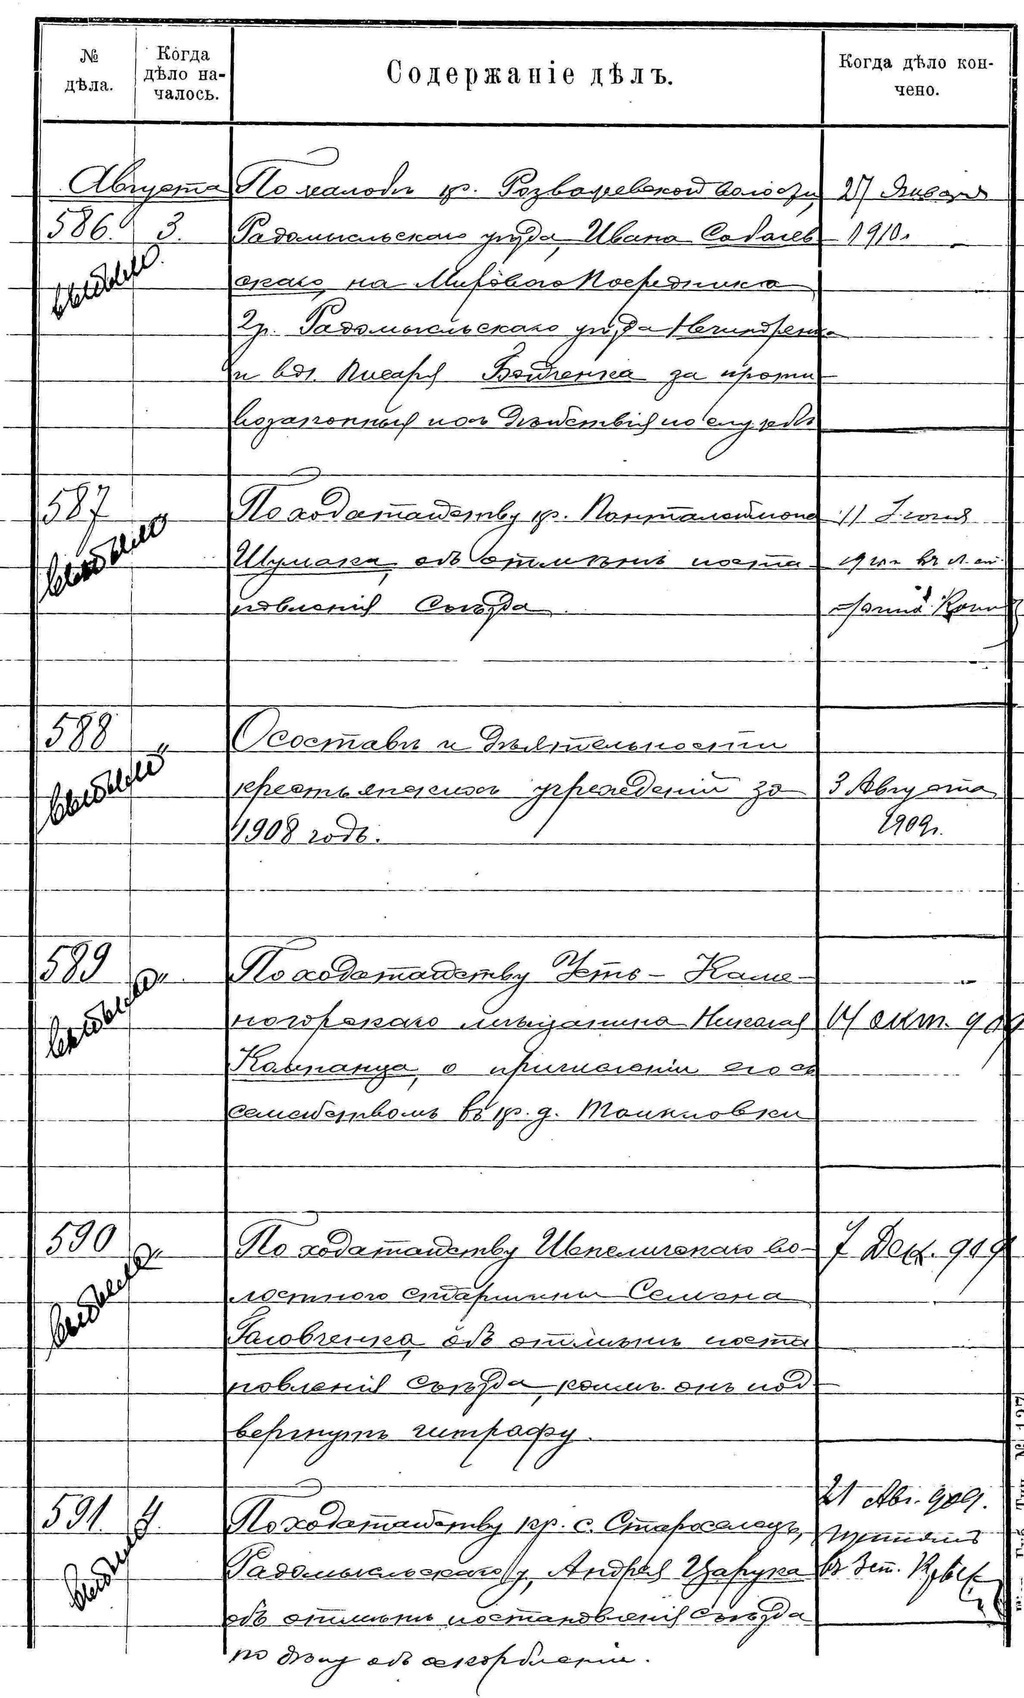 № дѣла.
Когда дѣло на-
чалось.
Содержаніе дѣлъ.
Когда дѣло кон-
чено.
Августа
586. 3.
выбыло.
По жалобѣ кр. Розважевской волости,
Радомысльскаго уѣзда, Ивана Собалев-
скаго, на Мирового Посредника
2 у. Радомысльскаго уѣзда
и вол. писаря Бойченка за проти-
возаконныя ихъ дѣйствія по службѣ
27 Января
1910 г.
587
выбыло
По ходатайству кр. Панталеймона
Шумака, объ отмѣнѣ поста-
новленія Съѣзда
11 Іюня
588 "
выбыло
О составѣ и дѣятельности
крестьянскихъ учрежденій за
1908 годъ.
3 Августа
1909 г.
589 "
выбыло
По ходатайству Усть-Каме-
ногорскаго мѣщанина Николая
Компанца, о причисленіи его съ
семействомъ въ кр. д.
14 окт. 909
590 "
выбыло
По ходатайству Шепеличскаго во-
лостного старшины Семена
Головченка, объ отмѣнѣ поста
новленія съѣзда, коимъ онъ под-
вергнутъ штрафу.
7 Дек. 909
591. 4.
выбыло
По ходатайству кр. с. Староселецъ,
Радомысльскаго у, Андрея Царука
объ отмѣнѣ постановленія съѣзда
по дѣлу объ оскорбленіи.
21 Авг. 909.